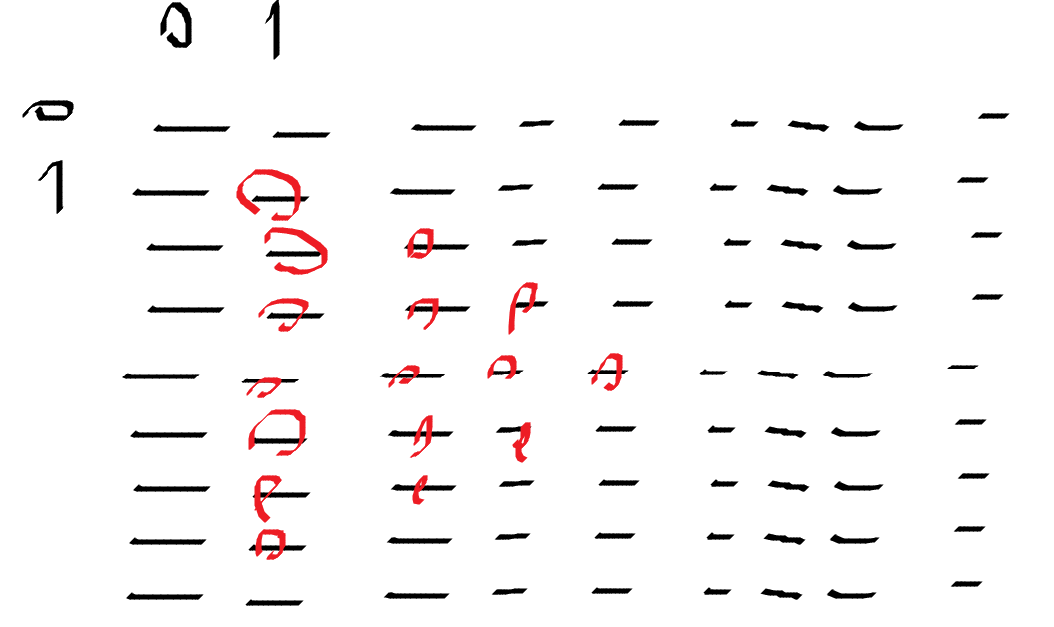 0 1
0
1